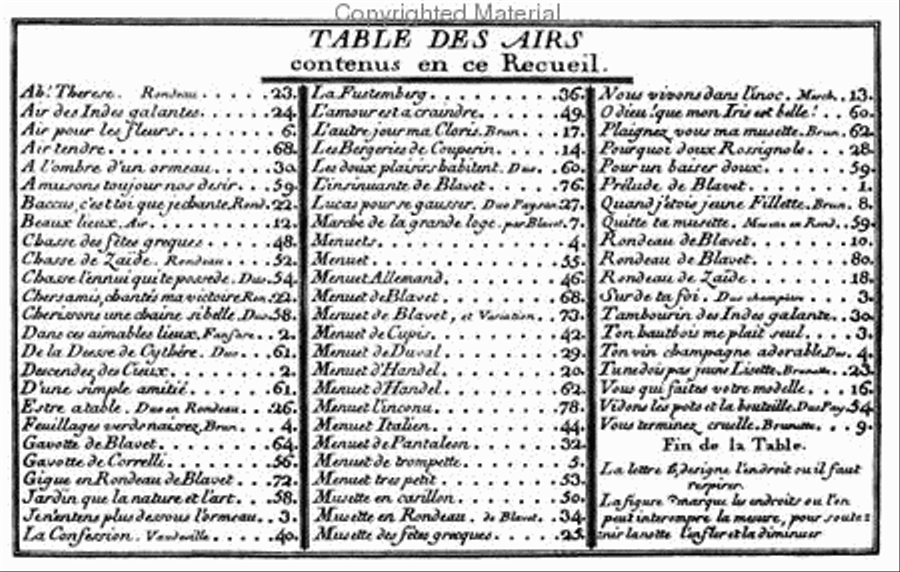 Copyrighted Material
TABLE DES AIRS
contenus en ce Recueil.
Ah! Therese. Rondeau . . . . . 23.
Air des Indes galantes . . . . . 24.
Air pour les fleurs . . . . . 6.
Air tendre . . . . . 68.
A l'ombre d'un ormeau . . . . . 30.
Amusons toujour nos desir . . . 59.
Baccus, c'est toi que je chante, Rond. 22.
Beaux lieux. Air . . . . . 12.
Chasse des fêtes greques . . . . . 48.
Chasse de Zaïde. Rondeau . . . . 52.
Chasse l'ennui qui te possede. Duo. 54.
Chers amis, chantés ma victoire Ron. 22.
Cherissons une chaine si belle. Duo. 58.
Dans ces aimables lieux. Fanfare . . 2.
De la Deesse de Cythére. Duo . . . 61.
Descendez des Cieux . . . . . 2.
D'une simple amitié . . . . . 61.
Estre a table. Duo en Rondeau . . . 26.
Feuillages verds naissez, Brun . . . 4.
Gavotte de Blavet . . . . . 64.
Gavotte de Correlli . . . . . 56.
Gigue en Rondeau de Blavet . . . 72.
Jardin que la nature et l'art . . . 58.
Je n'entens plus dessous l'ormeau . . 3.
La Confession. Vaudeville . . . . 40.
La Fustemberg . . . . . 36.
L'amour est a craindre . . . . . 49.
L'autre jour ma Cloris. Brun . . . 17.
Les Bergeries de Couperin . . . . 14.
Les doux plaisirs habitent. Duo . . 60.
L'insinuante de Blavet . . . . . 76.
Lucas pour se gausser. Duo Paysan 27.
Marche de la grande loge. par Blavet. 7.
Menuets . . . . . 4.
Menuet . . . . . 55.
Menuet Allemand . . . . . 46.
Menuet de Blavet . . . . . 68.
Menuet de Blavet, et Variation . . 73.
Menuet de Cupis . . . . . 42.
Menuet de Duval . . . . . 29.
Menuet d'Handel . . . . . 20.
Menuet d'Handel . . . . . 62.
Menuet l'inconu . . . . . 78.
Menuet Italien . . . . . 44.
Menuet de Pantaleon . . . . . 32.
Menuet de trompette . . . . . 5.
Menuet tres petit . . . . . 53.
Musette en carillon . . . . . 50.
Musette en Rondeau. de Blavet . . 34.
Musette des fêtes grecques . . . . 25.
Nous vivons dans l'inoc. March . . 13.
O dieu! que mon Iris est belle! . . 60.
Plaignez vous ma musette. Brun . 62.
Pourquoi doux Rossignole . . . . 28.
Pour un baiser doux . . . . . 59.
Prélude de Blavet . . . . . 1.
Quand j'etois jeune Fillette. Brun . 8.
Quitte ta musette. Musette en Rond. . 59.
Rondeau de Blavet . . . . . 10.
Rondeau de Blavet . . . . . 80.
Rondeau de Zaïde . . . . . 18.
Sur de ta foi. Duo champetre . . . 3.
Tambourin des Indes galante . . . 30.
Ton hautbois me plait seul . . . . 3.
Ton vin champagne adorable, Duo. 4.
Tu ne dois pas jeune Lisette. Brunette . . 23.
Vous qui faites votre modelle . . . 16.
Vidons les pots et la bouteille. Duo Pay. 54.
Vous terminez cruelle. Brunette . . . 9.
Fin de la Table.
La lettre h, designe l'endroit ou il faut
respirer.
La figure marque les endroits ou l'on
peut interompre la mesure, pour soute
nir la notte l'enfler et la diminuer